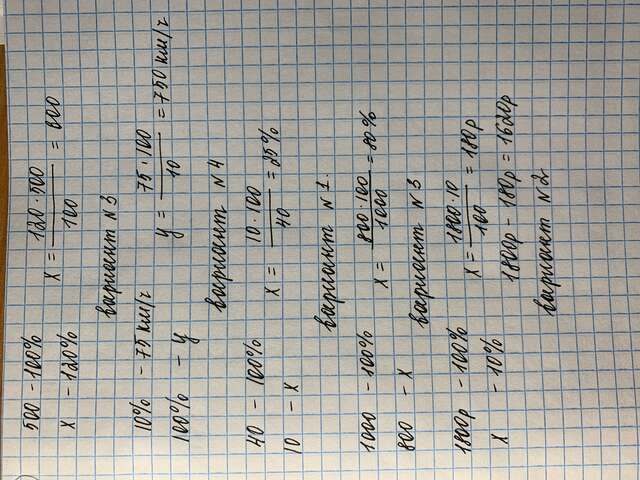 500 - 100%
x - 120%
x = 120 · 500 / 100 = 600
вариант №3
10% - 75 км/г
100% - y
y = 75 · 100 / 10 = 750 км/г
вариант №4
40 - 100%
10 - x
x = 10 · 100 / 40 = 25%
вариант №1.
1000 - 100%
800 - x
x = 800 · 100 / 1000 = 80%
вариант №3
1800р - 100%
x - 10%
x = 1800 · 10 / 100 = 180р
1800р - 180р = 1620р
вариант №2